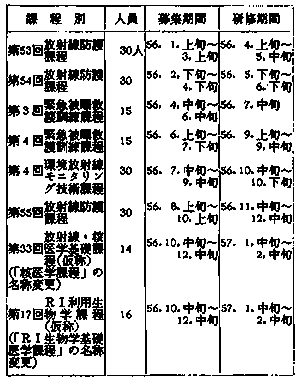 課程別 人員 募集期間 研修期間
第53回放射線防護課程 30人 56. 1.上旬～ 3.上旬 56. 4.上旬～ 5.中旬
第54回放射線防護課程 30 56. 2.下旬～ 4.下旬 56. 5.下旬～ 6.下旬
第3回緊急被曝救護訓練課程 15 56. 4.中旬～ 6.中旬 56. 7.中旬
第4回緊急被曝救護訓練課程 15 56. 6.上旬～ 7.下旬 56. 9.上旬～ 9.中旬
第4回環境放射線モニタリング技術課程 30 56. 7.中旬～ 9.中旬 56.10.中旬～ 10.下旬
第55回放射線防護課程 30 56. 8.上旬～ 10.上旬 56.11.中旬～ 12.中旬
第33回放射線・核医学基礎課程(仮称)(「核医学課程」の名称変更) 14 56.10.中旬～ 12.中旬 57. 1.中旬～ 2.中旬
第17回RI利用生物学課程(仮称)(「RI生物学基礎医学課程」の名称変更) 16 56.10.中旬～ 12.中旬 57. 1.中旬～ 2.中旬